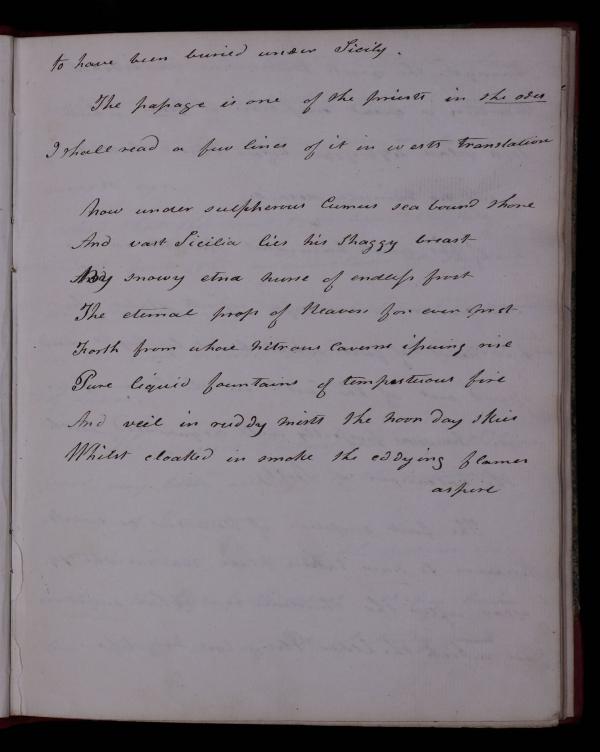 to have been buried under Sicily.
The passage is one of the priests in the odes
I shall read a few lines of it in wests translation
Now under sulpherous Cumas sea bound shore
And vast Sicilia lies his shaggy breast
By snowy etna nurse of endless frost
The eternal prop of Heavens for ever prest
Forth from whose nitrous caverns issuing rise
Pure liquid fountains of tempestuous fire
And veil in ruddy mists the noon day skies
Whilst cloaked in smoke the eddying flames
aspire